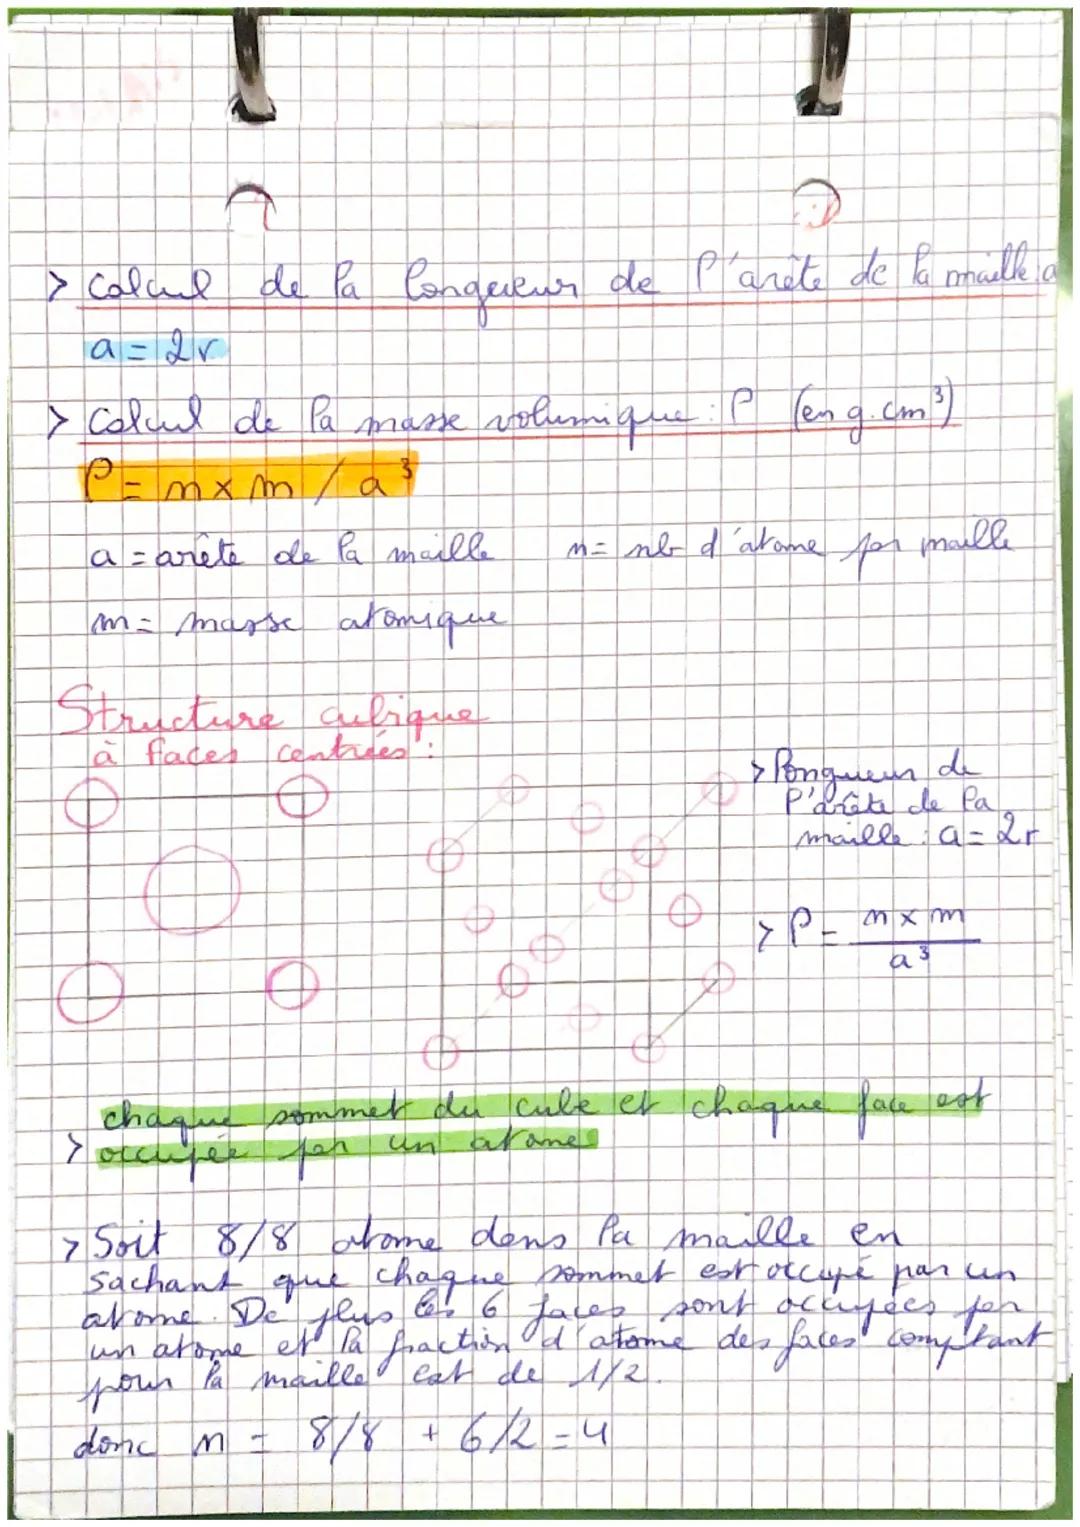 > Calcul de la longueur de l'arête de la maille : a
a = 2r
> Calcul de la masse volumique : ρ (en g.cm³)
ρ = n x m / a³
a = arête de la maille n = nb d'atome par maille
m = masse atomique
Structure cubique
à faces centrées :
> longueur de
l'arête de la
maille : a = 2r
> ρ = n x m
a³
chaque sommet du cube et chaque face est
> occupée par un atome
> Soit 8/8 atome dans la maille en
sachant que chaque sommet est occupé par un
atome. De plus les 6 faces sont occupées par
un atome et la fraction d'atome des faces comptant
pour la maille est de 1/2.
donc n = 8/8 + 6/2 = 4